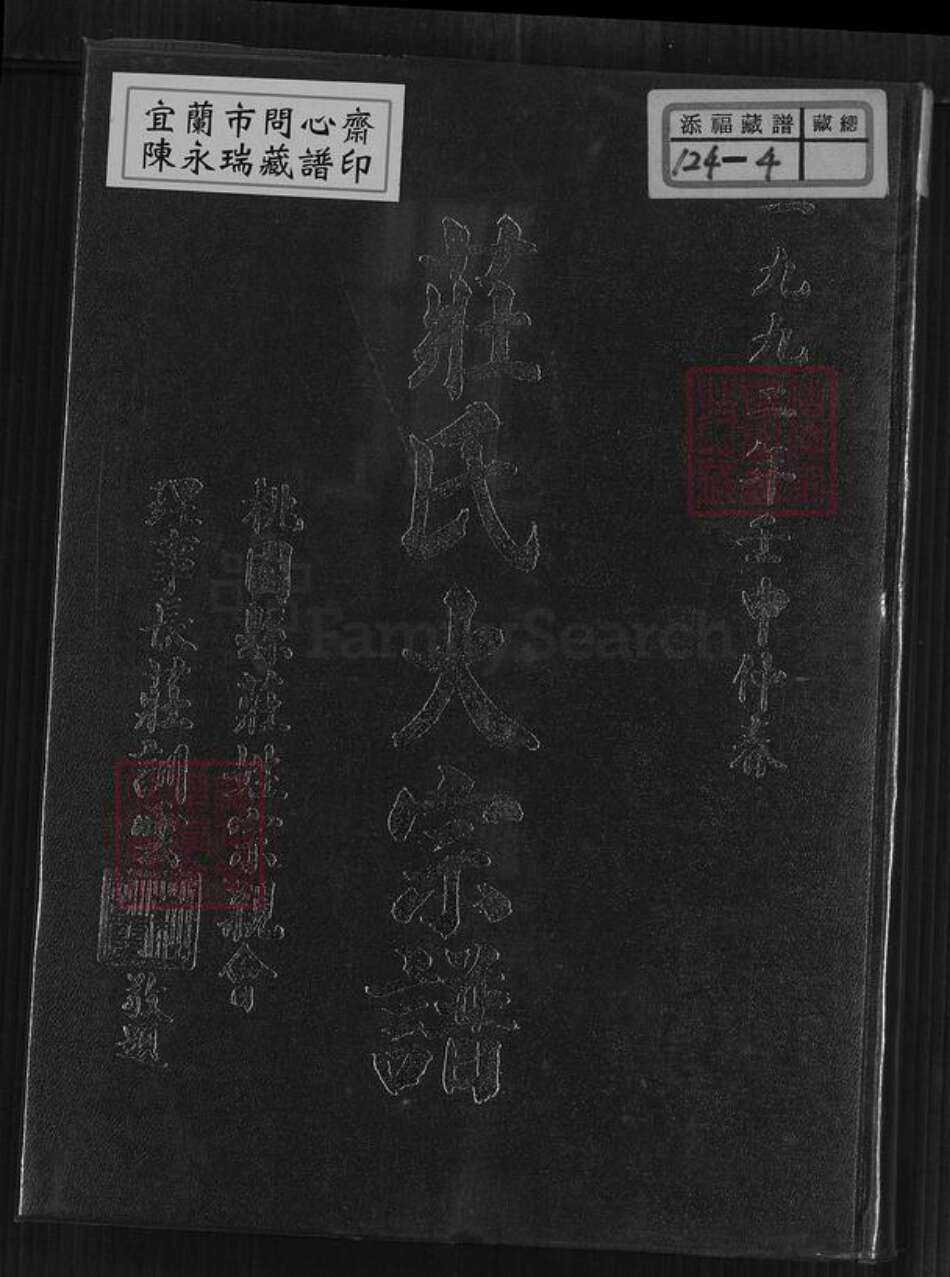 宜蘭市問心齋
陳永瑞藏譜印
添福藏譜 藏總
124-4
一九九二年壬申仲春
莊氏大宗譜
桃園縣莊姓宗親會
理事長莊訓
敬題
FamilySearch